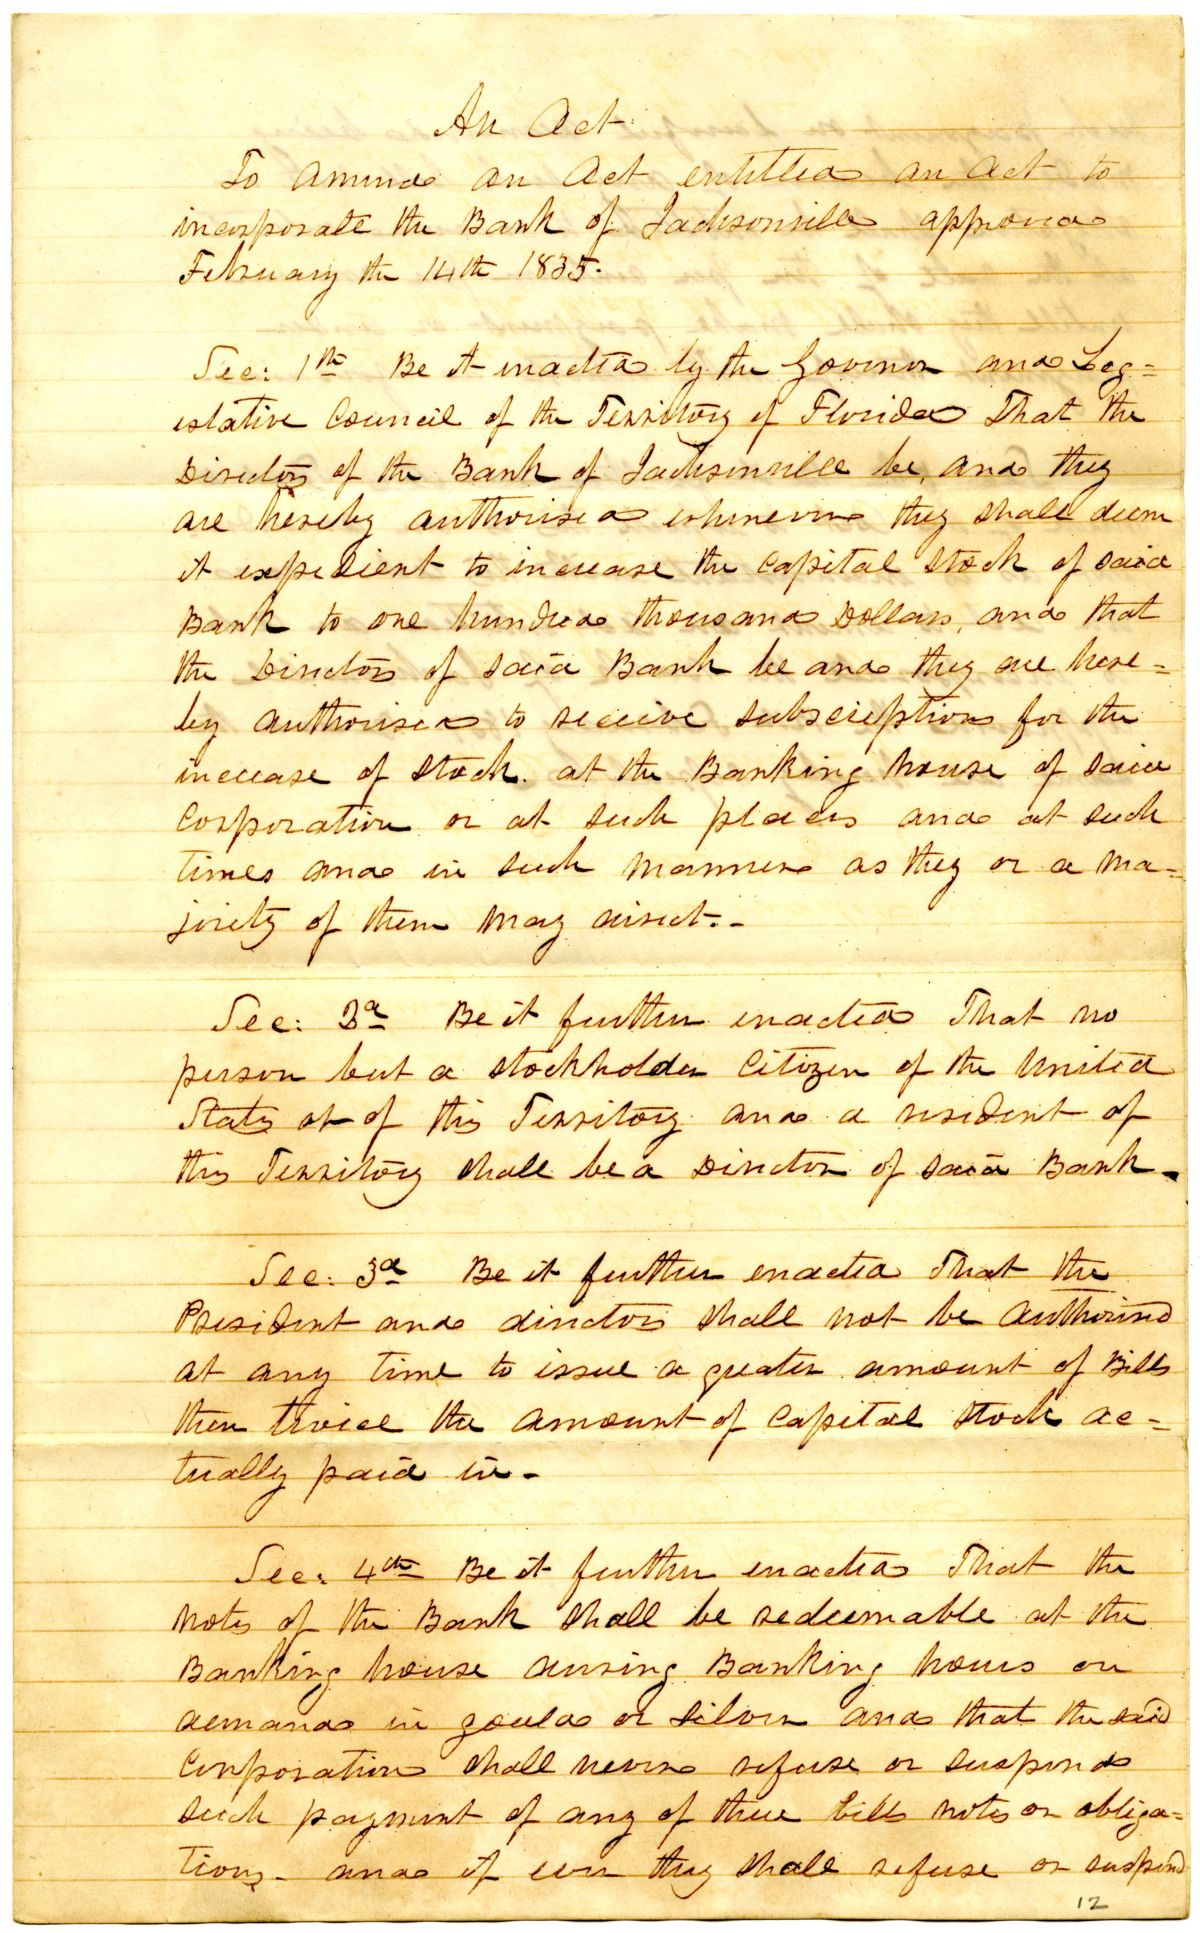 An Act
To amend an Act entitled an Act to
incorporate the Bank of Jacksonville approved
February the 14th 1835.
Sec: 1th Be it enacted by the Govenor and Leg=
islative Council of the Territory of Florida That the
Directors of the Bank of Jacksonville be, and they
are hereby authorised whenever they shall deem
it expedient to increase the Capital Stock of said
Bank to one hundred thousand Dollars, and that
the Directors of said Bank be and they are here=
by authorised to receive subscriptions for the
increase of Stock. at the Banking house of said
Corporation or at such places and at such
times and in such manner as they or a ma=
jority of them may direct.-
Sec: 2d Be it further enacted That no
person but a stockholder Citizen of the United
States or of this Territory and a resident of
this Territory shall be a Director of said Bank.
Sec: 3d Be it further enacted That the
President and directors shall not be authorised
at any time to issue a greater amount of Bills
then twice the amount of Capital stock ac=
tually paid in-
Sec: 4th Be it further enacted That the
notes of the Bank shall be redeemable at the
Banking house during Banking hours on
demand in gould or silver and that the said
Corporation shall never refuse or suspend
such payment of any of their bills notes or obliga=
tions- and if ever they shall refuse or suspend
12